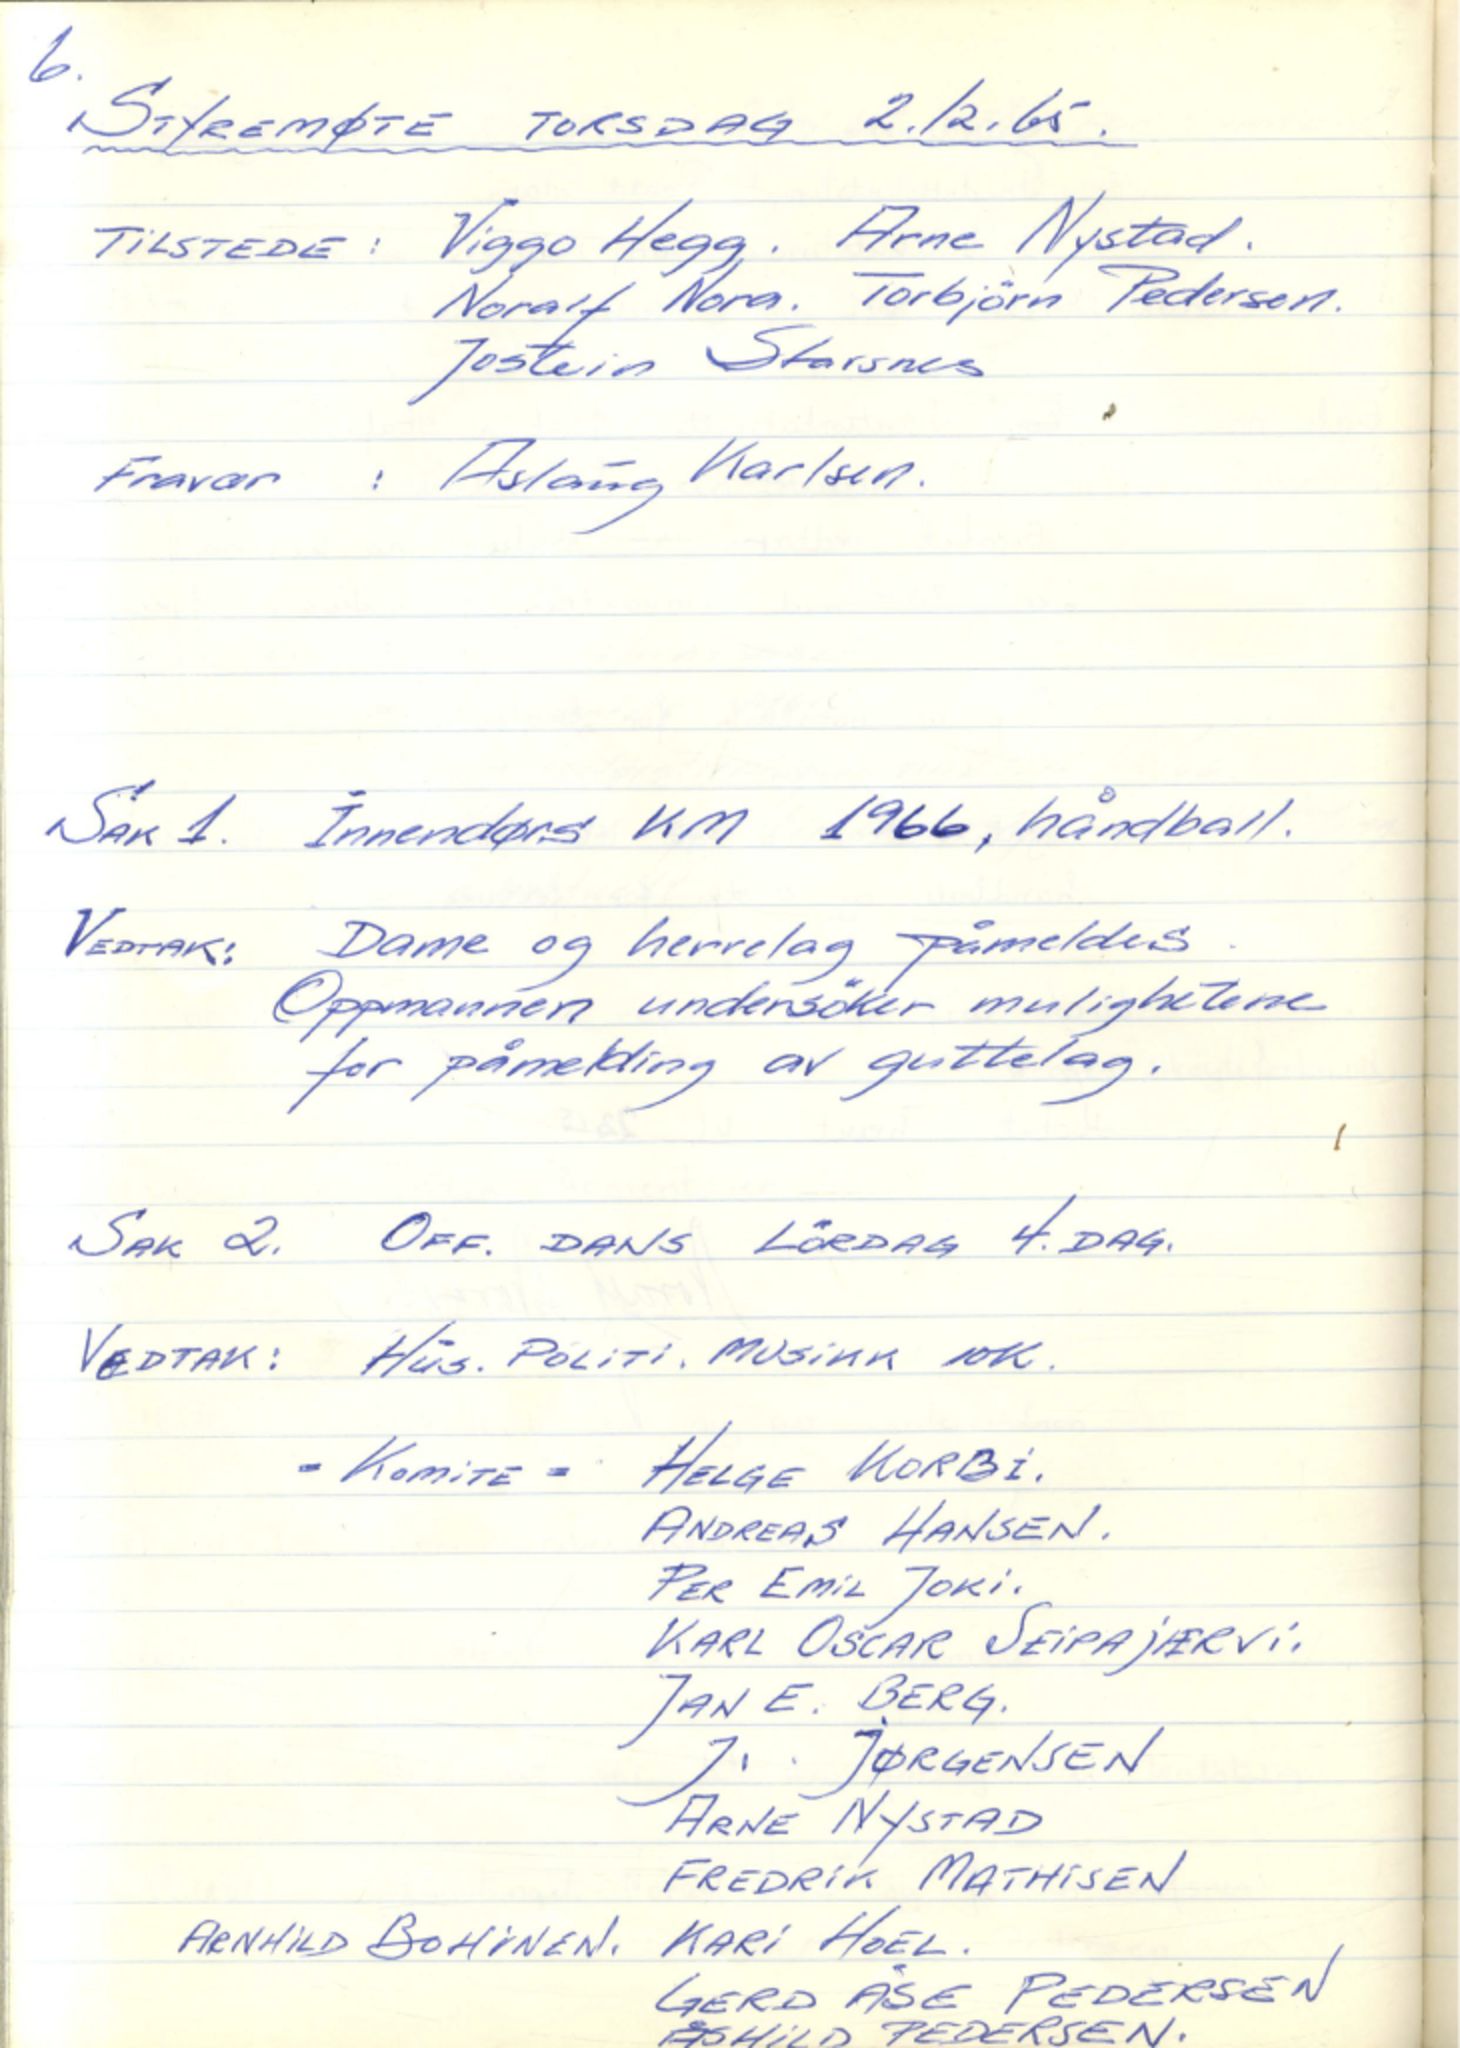 6.
STYREMØTE TORSDAG 2.12.65.
TILSTEDE : Viggo Hegg. Arne Nystad.
Noralf Nora. Torbjörn Pedersen.
Jostein Starsnes
Fravær : Aslaug Karlsen.
SAK 1. Innendørs KM 1966, håndball.
VEDTAK: Dame og herrelag påmeldes.
Oppmannen undersöker mulighetene
for påmelding av guttelag.
SAK 2. OFF. DANS LÖRDAG 4. DAG.
VEDTAK: HUS. POLITI. MUSIKK OK.
= KOMITE = HELGE KORBI.
ANDREAS HANSEN.
PER EMIL JOKI.
KARL OSCAR SEIPAJÆRVI.
JAN E. BERG.
J. JØRGENSEN
ARNE NYSTAD
FREDRIK MATHISEN
ARNHILD BOHINEN. KARI HOEL.
GERD ÅSE PEDERSEN
ÅSHILD PEDERSEN.